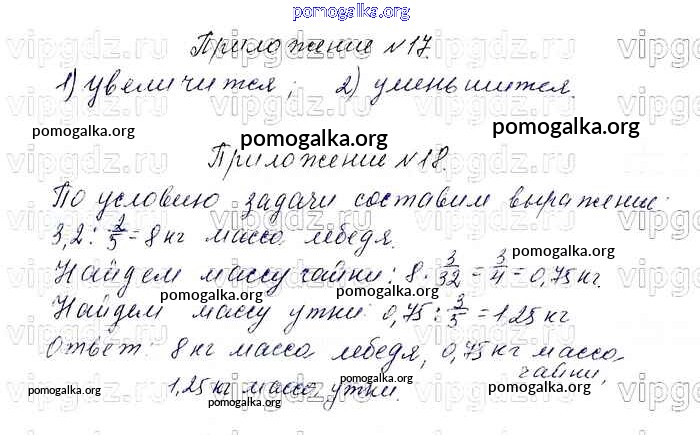 pomogalka.org
Приложение №17.
1) увеличится; 2) уменьшится.
pomogalka.org pomogalka.org pomogalka.org
Приложение №18.
По условию задачи составим выражение:
3,2 : 2/5 = 8 кг масса лебедя.
pomogalka.org
Найдем массу чайки: 8 · 3/32 = 3/4 = 0,75 кг.
pomogalka.org pomogalka.org
Найдем массу утки: 0,75 : 3/5 = 1,25 кг
pomogalka.org
Ответ: 8 кг масса лебедя, 0,75 кг масса
чайки,
1,25 кг масса утки.
pomogalka.org pomogalka.org pomogalka.org
vipgdz.ru